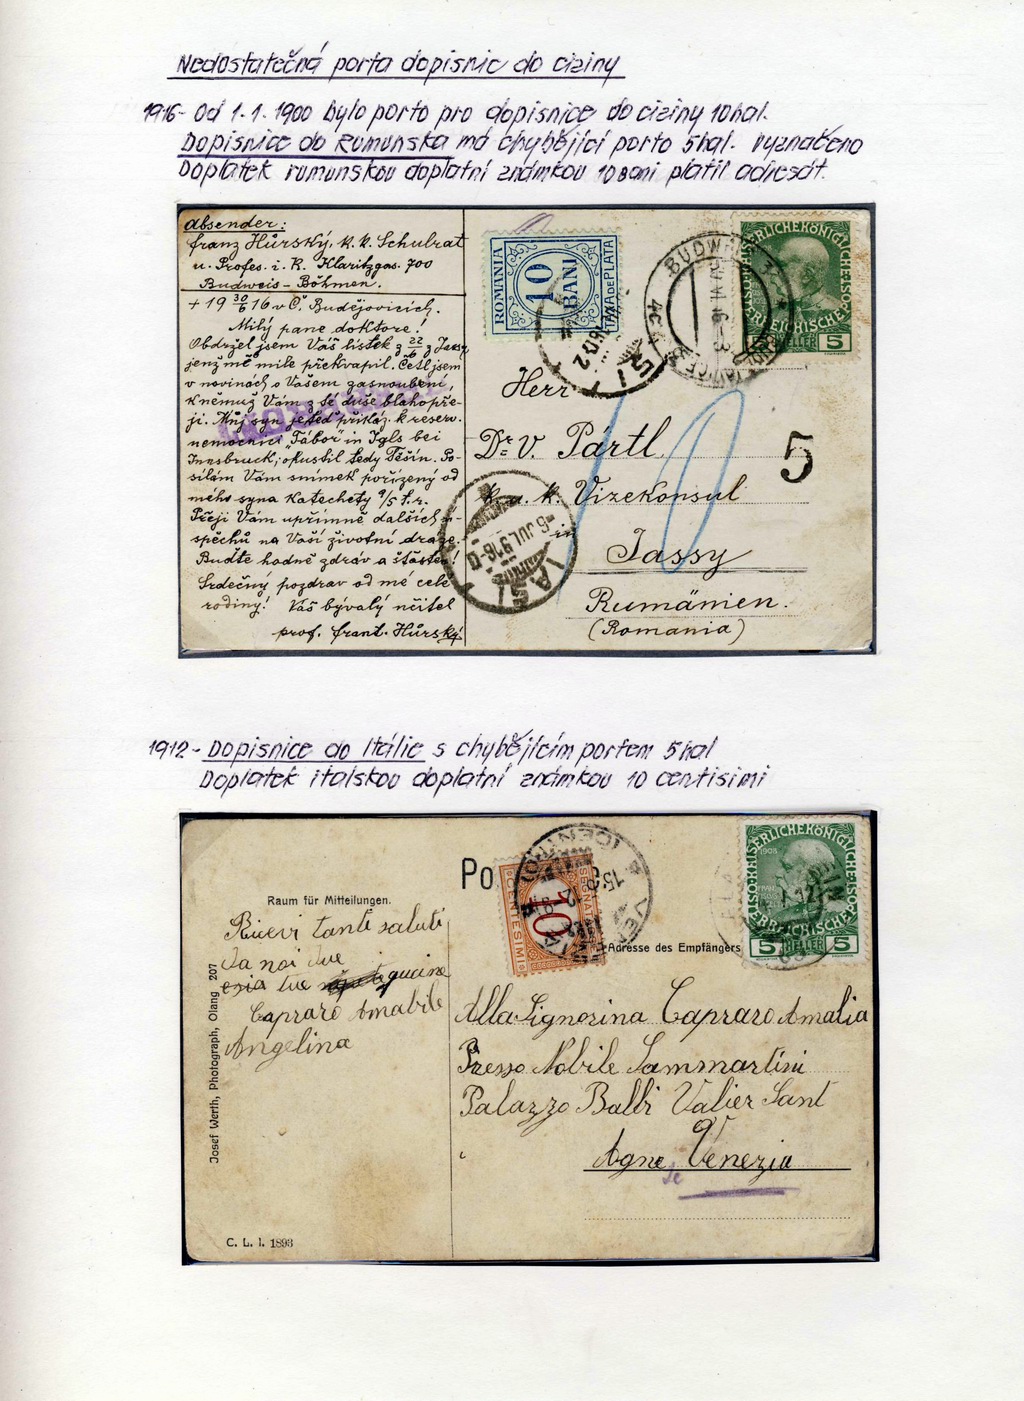 Nedostatečná porta dopisnic do ciziny
1916- Od 1.1.1900 bylo porto pro dopisnice do ciziny 10hal.
Dopisnice do Rumunska má chybějící porto 5hal. Vyznačeno
Doplatek rumunskou doplatní známkou 10 bani platil adresát.
Absender:
Franz Hůrský, K. K. Schulrat
u. Profes. i. R. Klaritzgas. 700
Budweis - Böhmen.
+ 19 30/6 16 v Č. Budějovicích.
Milý pane doktore!
Obdržel jsem Váš lístek z 22/6 z Jassy
jenž mě mile překvapil. Četl jsem
v novinách o Vašem zasnoubení,
k němuž Vám z té duše blahopře-
ji. Můj syn jehož přikáz. k reserv.
nemocnici „Tábor" in Igls bei
Innsbruck; opustil tedy Těšín. Po-
sílám Vám snímek pořízený od
mého syna Katechety 9/5 t.r.
Přeji Vám upřímně dalších ú-
spěchů na Vaší životní dráze.
Buďte hodně zdráv a šťasten!
Srdečný pozdrav od mé celé
rodiny! Váš bývalý učitel
prof. Frant. Hůrský.
ROMANIA
10
BANI
TAXA DE PLATA
BUDWEIS
KAISERLICHE KÖNIGLICHE
ÖSTERREICHISCHE
5 HELLER 5
IASI
-5 JUL 916
IASI
Herr
Dr. V. Pártl
10
5
k. u. k. Vizekonsul
in
Jassy
Rumänien.
(Romania)
1912- Dopisnice do Itálie s chybějícím portem 5hal
Doplatek italskou doplatní známkou 10 centisimi
Po
SEGNATASSE
10
CENTESIMI
VENEZIA
(CENTRO)
KAISERLICHE KÖNIGLICHE
5 HELLER 5
Raum für Mitteilungen.
Adresse des Empfängers
Ricevi tanti saluti
da noi due
tue
Capraro Amabile
Angelina
Alla Signorina Capraro Amalia
Presso Nobile Sammartini
Palazzo Balbi Valier Sant
Agnese Venezia
Josef Werth, Photograph, Olang 207
C. L. I. 1893